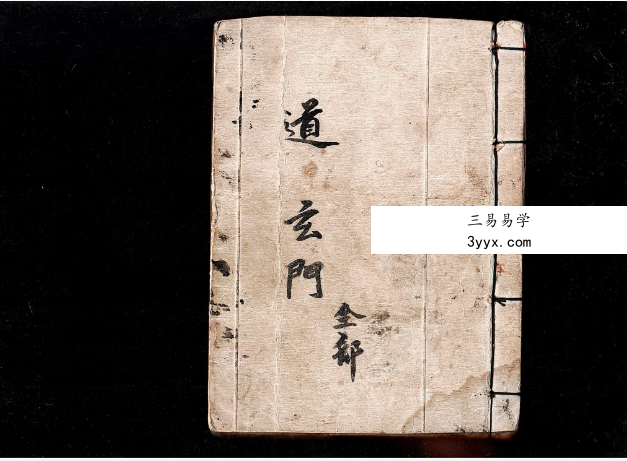 道玄門
全部
三易易学
3yyx.com